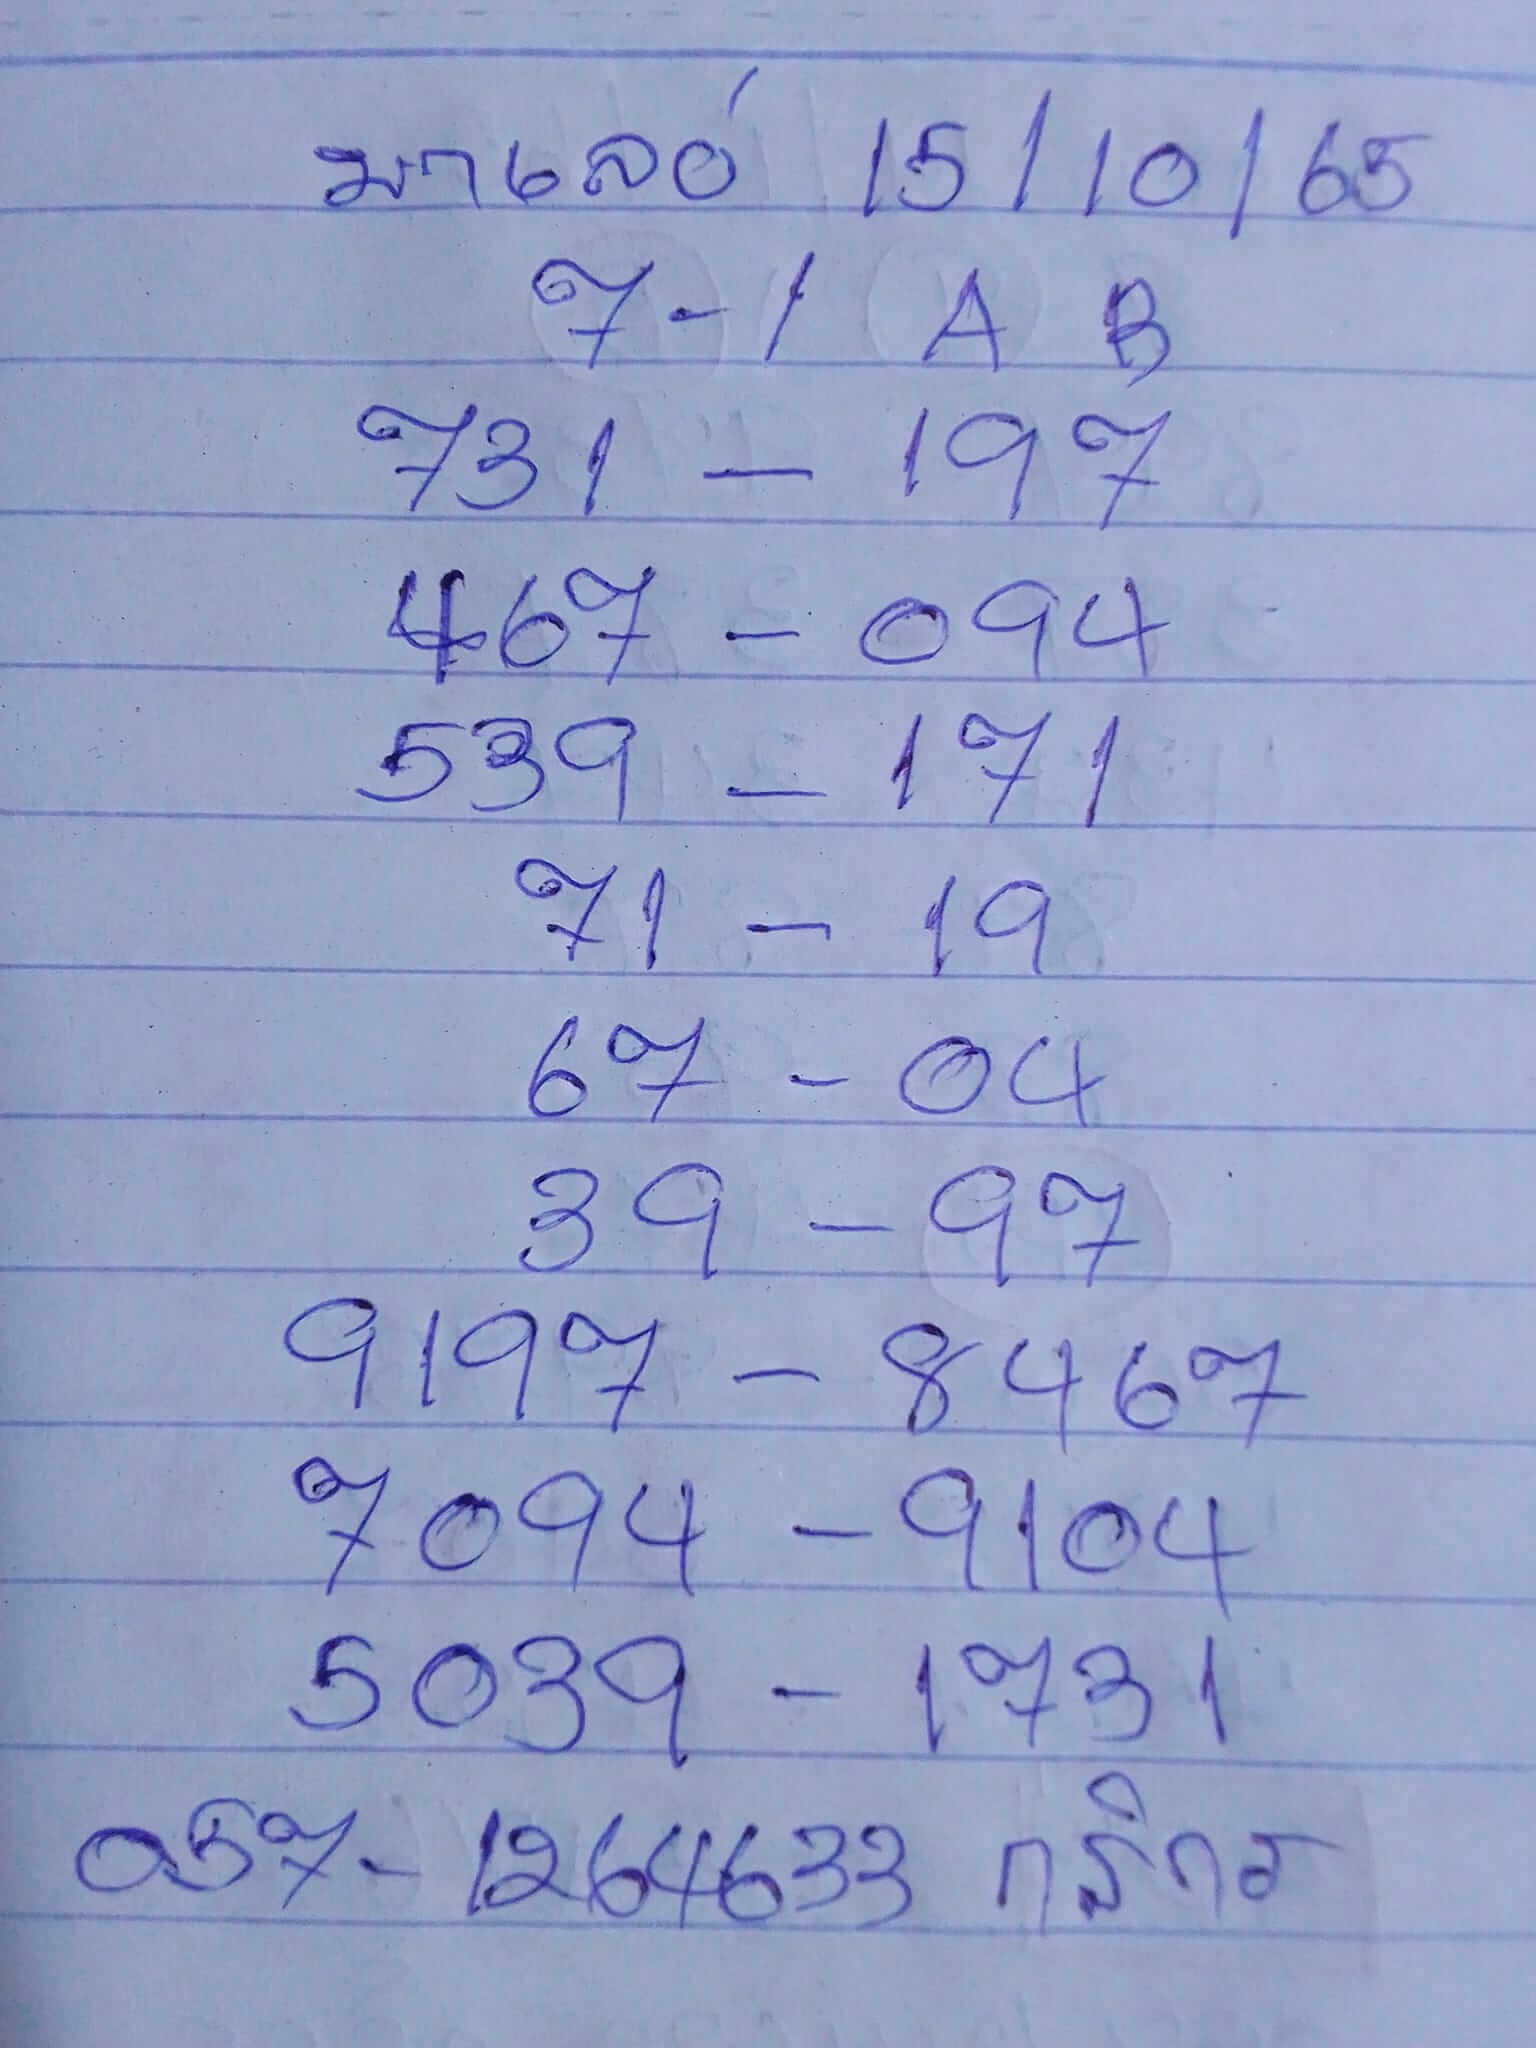 มาเลย์ 15/10/65
7-1 A B
731 - 197
467 - 094
539 - 171
71 - 19
67 - 04
39 - 97
9197 - 8467
7094 - 9104
5039 - 1731
057-1264633 กสิกร